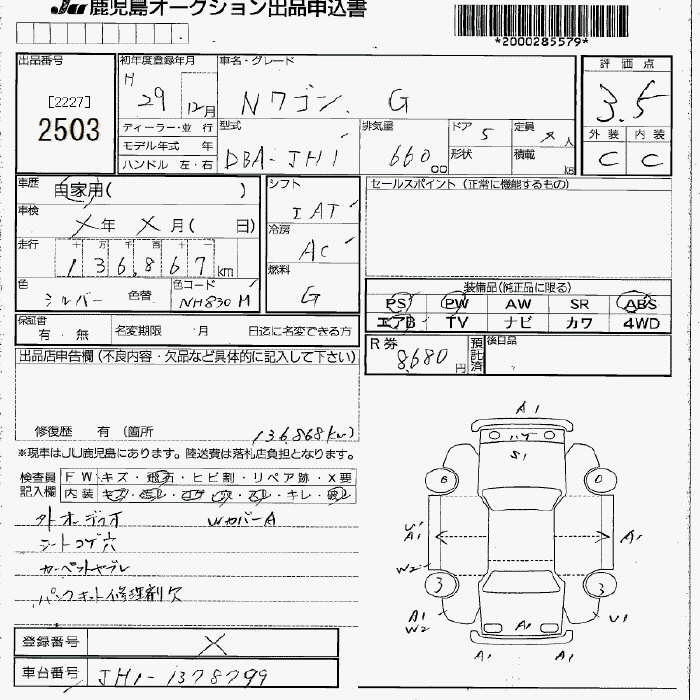 JU 鹿児島オークション出品申込書
*2000285579*
出品番号 初年度登録年月 車名・グレード 評価点
[2227] H 29 12月 Nワゴン G 3.5
2503
ディーラー・並 行 型式 排気量 ドア 5 定員 人 外装 内装
モデル年式 年 DBA-JH1 660 cc 形状 積載 kg C C
ハンドル 左・右
車歴 自家用( ) シフト IAT セールスポイント (正常に機能するもの)
車検 X年 X月( 日) 冷房 AC
走行 十 万 千 百 十 一
136,867 km 燃料 G
色 シルバー 色替 色コード NH830M
装備品(純正品に限る)
PS PW AW SR ABS
エアB TV ナビ カワ 4WD
保証書 有・無 名変期限 ・月 日迄に名変できる方
R券 8,680 円 預託済 後日品
出品店申告欄(不良内容・欠品など具体的に記入して下さい)
修復歴 有(箇所 136,868km)
※現車はJU鹿児島にあります。陸送費は落札店負担となります。
検査員 FW キズ・飛石・ヒビ割・リペア跡・X要
記入欄 内装
外オーディオ WカバーA
シートコゲ穴
カーペットヤブレ
パンクキット修理剤欠
登録番号 X
車台番号 JH1-1378799
A1
S1
6 0
U1
A1 A1
W2
3 3
A1 U1
W2 A1
A1 A1